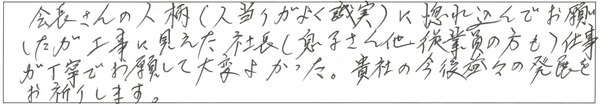 会長さんの人柄(人当りがよく誠実)に惚れ込んでお願い
したが工事に見えた社長(息子さん他従業員の方も)仕事
が丁寧でお願して大変よかった。貴社の今後益々の発展を
お祈りします。